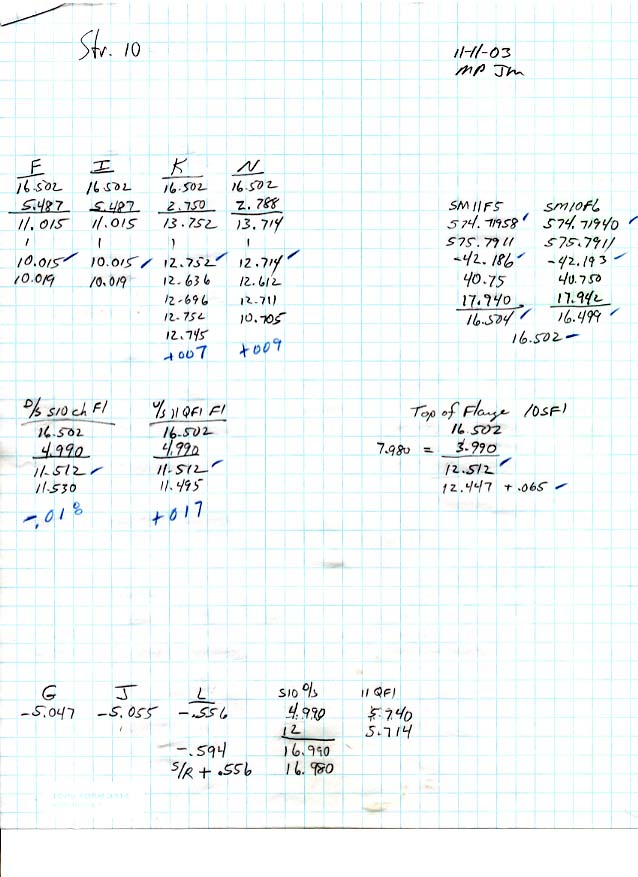 Str. 10
11-11-03
MP Jm
F I K N
16.502 16.502 16.502 16.502
5.487 5.487 2.750 2.788
11.015 11.015 13.752 13.714
1 1 1 1
10.015 ✓ 10.015 ✓ 12.752 ✓ 12.714 ✓
10.019 10.019 12.636 12.612
12.696 12.711
12.752 10.705
12.745
+007 +009
SM11F5 SM10F6
574.71958 ✓ 574.71940 ✓
575.7911 575.7911
-42.186 ✓ -42.193 ✓
40.75 40.750
17.940 17.942
16.504 ✓ 16.499 ✓
16.502
D/S S10 ch F1 U/S 11 QF1 F1
16.502 16.502
4.990 4.990
11.512 ✓ 11.512 ✓
11.530 11.495
-.018 +017
Top of Flange 10SF1
16.502
7.980 = 3.990
12.512 ✓
12.447 + .065
G J L S10 O/S 11 QF1
-5.047 -5.055 -.556 4.990 5.740
12 5.714
-.594 16.990
S/R + .556 16.980